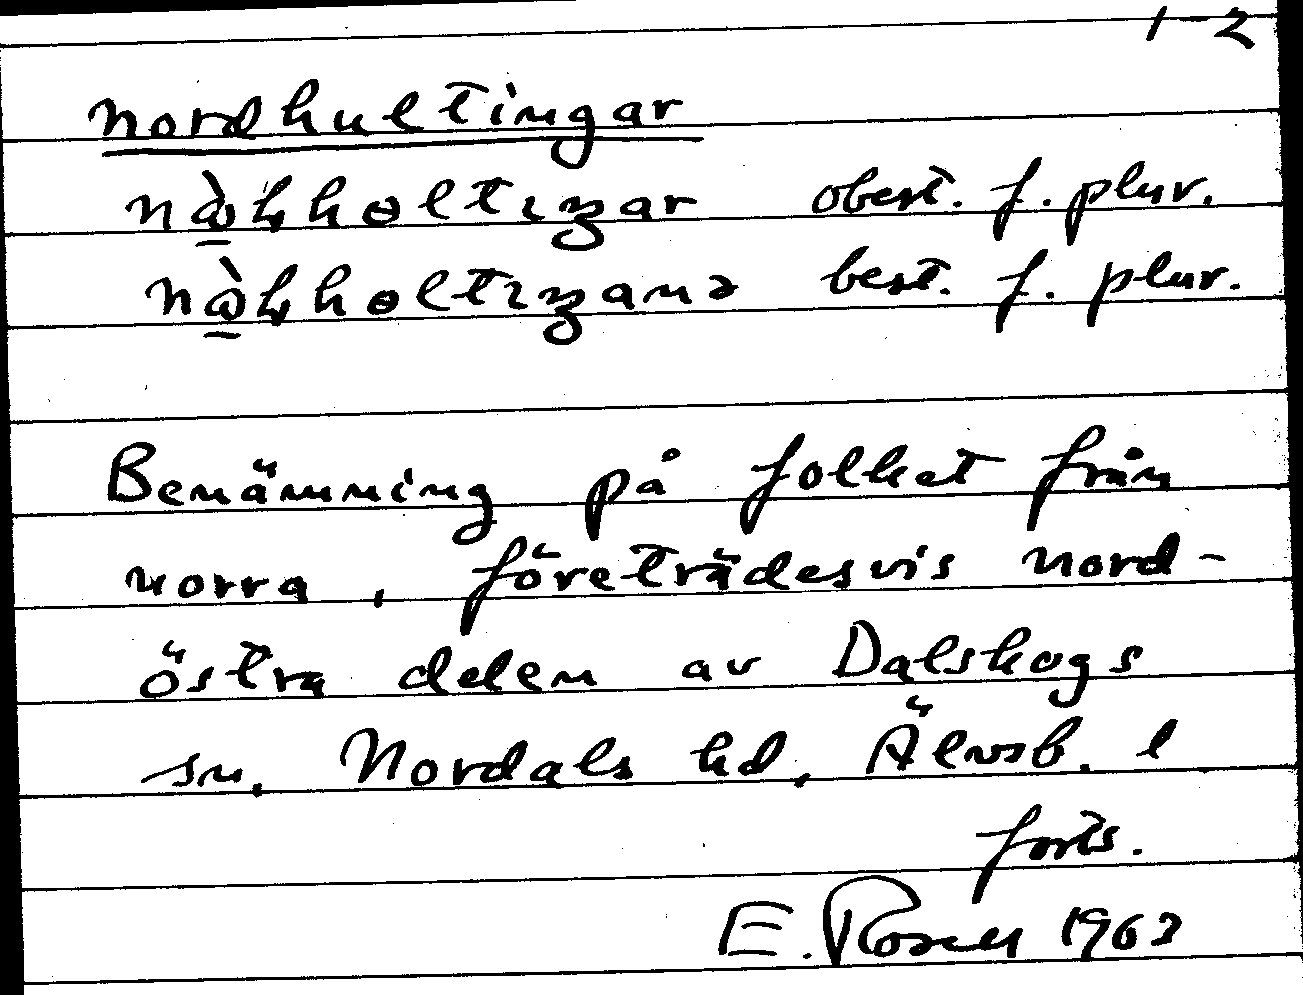 1-2
nordhultingar
nὼ̠ꜧhɵltıŋar obest. f. plur.
nὼ̠ꜧhɵltıŋanə best. f. plur.
Benämning på folket från
norra, företrädesvis nord-
östra delen av Dalskogs
sn, Nordals hd, Älvsb. l
forts.
E. Rosell 1963